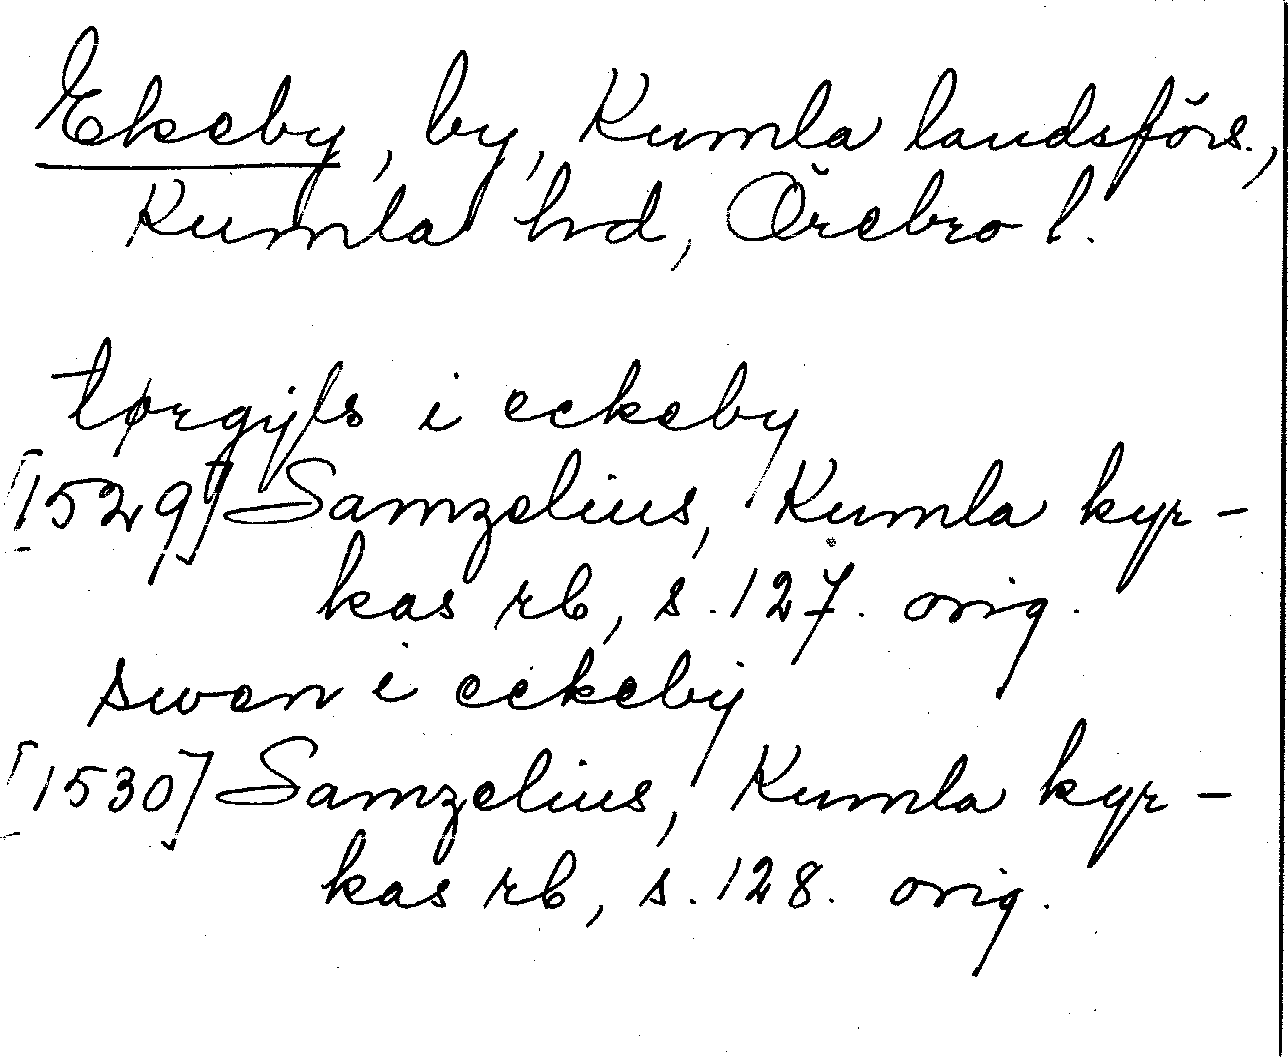 Ekeby, by, Kumla landsförs.,
Kumla hd, Örebro l.
tørgijls i eekeby
[1529] Samzelius, Kumla kyr-
kas rb, s. 127. orig.
swen i eekeby
[1530] Samzelius, Kumla kyr-
kas rb, s. 128. orig.